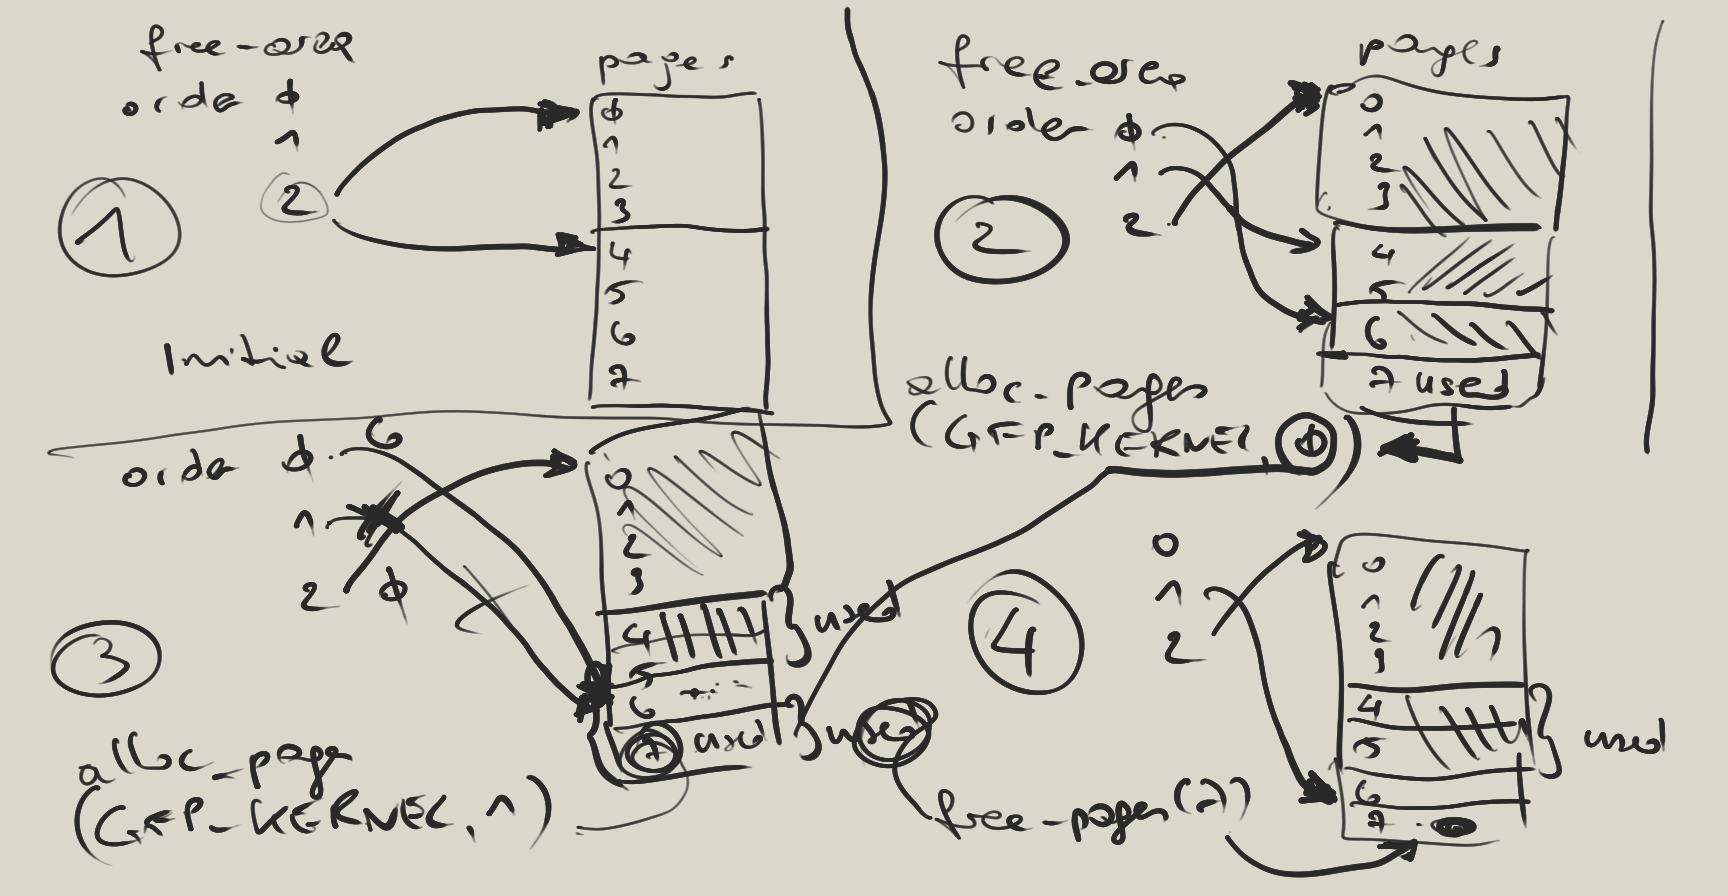 free-area
order 0
1
2
1
Initial
pages
0
1
2
3
4
5
6
7
free_area
order 0
1
2
2
pages
0
1
2
3
4
5
6
7 used
alloc_pages
(GFP_KERNEL, 0)
order 0 6
1
2 0
3
0
1
2
3
4
5
6
7 used
used
used
alloc_page
(GFP_KERNEL, 1)
4
0
1
2
0
1
2
3
4
5
6
7
used
free_pages(7)